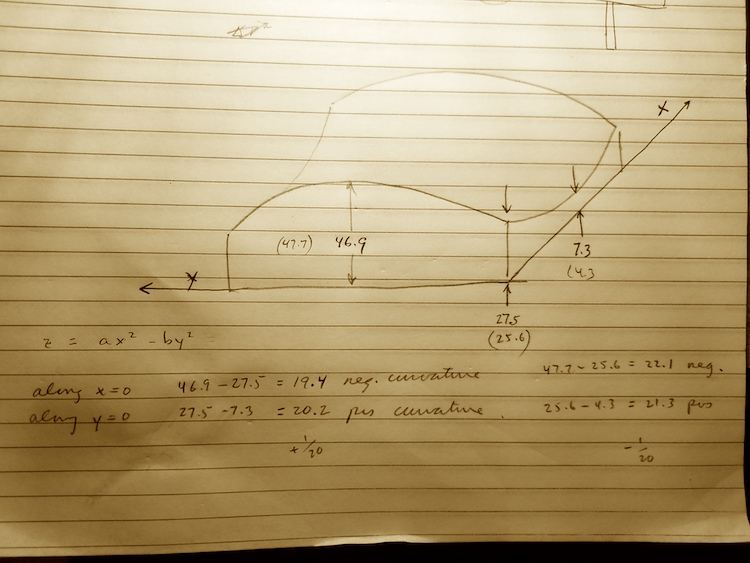 x
(47.7) 46.9
7.3
(4.3
y
27.5
(25.6)
z = ax² - by²
along x=0 46.9 - 27.5 = 19.4 neg. curvature 47.7 - 25.6 = 22.1 neg.
along y=0 27.5 - 7.3 = 20.2 pos curvature. 25.6 - 4.3 = 21.3 pos
+1/20 -1/20